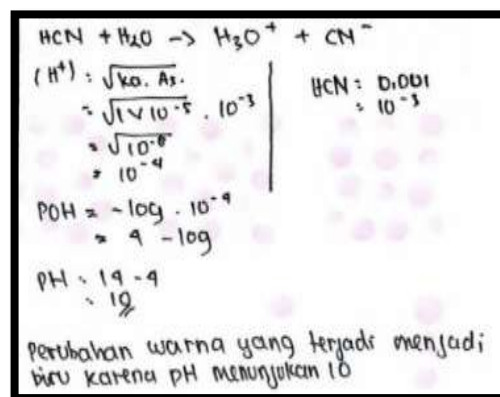 HCN + H₂O -> H₃O⁺ + CN⁻
(H⁺) : √Ka. As.
= √1 x 10⁻⁵ . 10⁻³
= √10⁻⁸
= 10⁻⁴
HCN = 0,001
= 10⁻³
POH = -log . 10⁻⁴
= 4 - log
PH = 14 - 4
= 10
Perubahan warna yang terjadi menjadi
biru karena pH menunjukan 10